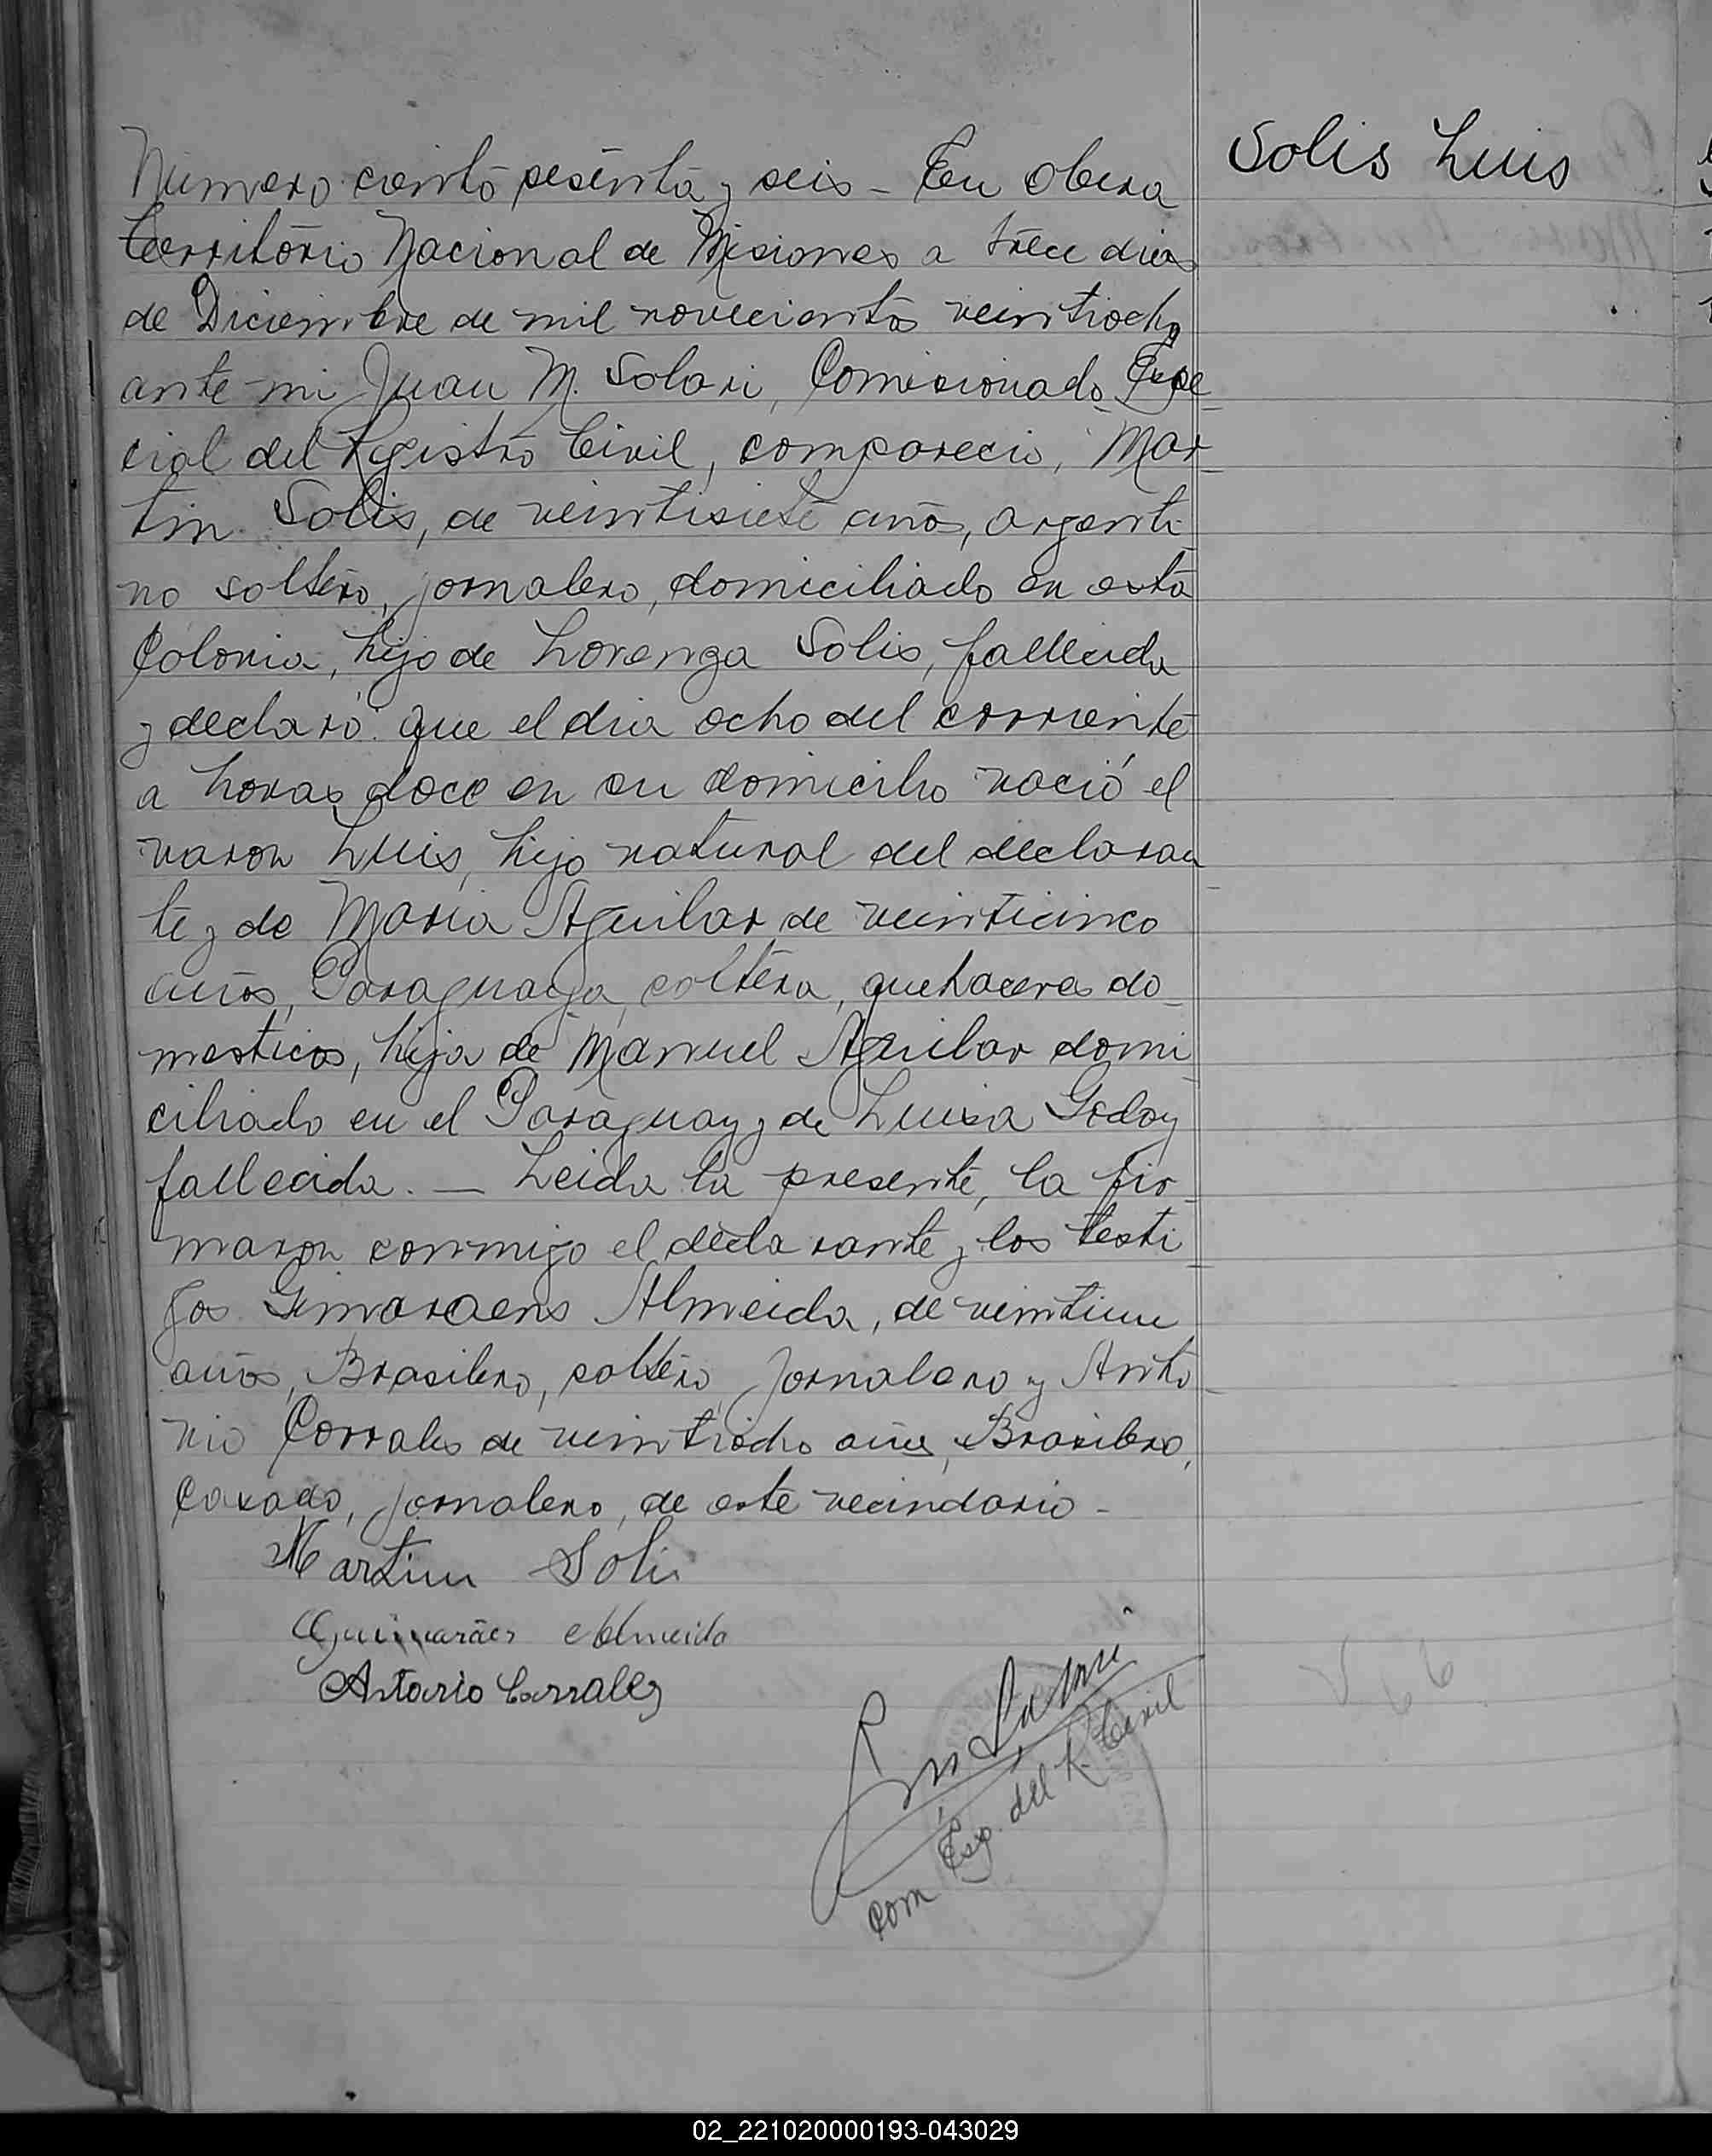 Numero ciento sesenta y seis - En Obera
Solis Luis
Territorio Nacional de Misiones a trece dias
de Diciembre de mil novecientos veintiocho
ante mi Juan M. Solari, Comisionado Espe-
cial del Registro Civil, comparecio, Mar-
tin Solis, de veintisiete años, argenti-
no soltero, jornalero, domiciliado en esta
Colonia, hijo de Lorenza Solis, fallecida
y declaró que el dia ocho del corriente
a horas doce en su domicilio nació el
varon Luis, hijo natural del declaran-
te y de Maria Aguilar de veinticinco
años, Paraguaya, soltera, quehaceres do-
mesticos, hija de Manuel Aguilar domi-
ciliado en el Paraguay y de Luisa Godoy
fallecida. — Leida la presente, la fir-
maron conmigo el declarante y los testi-
gos Gimaraens Almeida, de veintiun
años, Brasilero, soltero, jornalero y Anto-
nio Corrales de veintiocho años, Brasilero,
casado, jornalero, de este vecindario -
Martin Solis
Guimarães Almeida
Antonio Corrales
Solari
Com Esp. del R. Civil
02_221020000193-043029